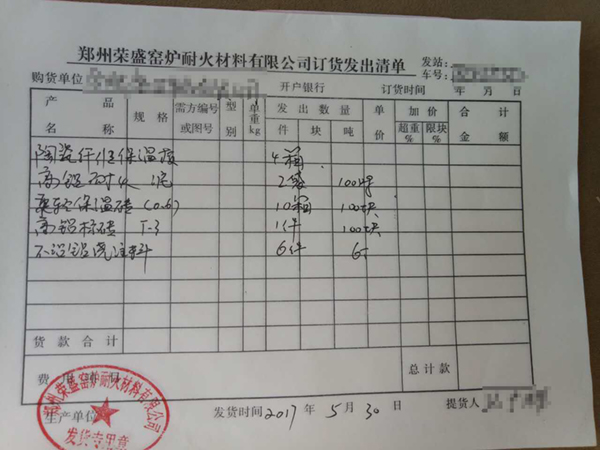 郑州荣盛窑炉耐火材料有限公司订货发出清单
发站:
车号:
购货单位 开户银行 订货时间 年 月 日
产品名称 规格 需方编号或图号 型别 单重kg 发出数量 件 块 吨 单价 加价 超重% 限块% 合计金额
陶瓷纤维保温 4箱
高铝耐火泥 2袋
聚轻保温砖 (0.6) 10箱 100块
高铝标砖 T-3 1件 100块
不沾铝浇注料 6件 6
货款合计
费用 总计款
生产单位 发货时间 2017 年 5 月 30 日 提货人
郑州荣盛窑炉耐火材料有限公司
发货专用章